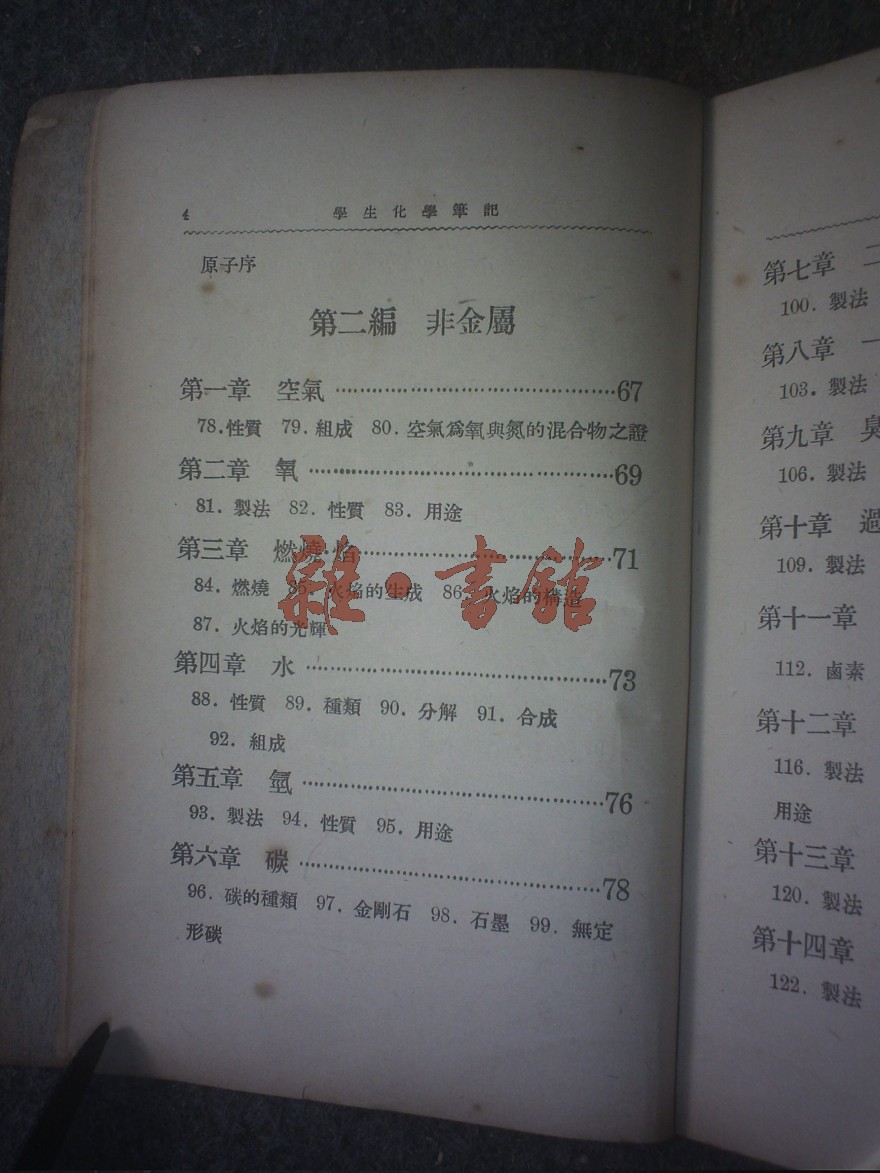 4
學生化學筆記
原子序
第二編 非金屬
第一章 空氣……………………………67
78.性質 79.組成 80.空氣爲氧與氮的混合物之證
第二章 氧……………………………69
81.製法 82.性質 83.用途
第三章 燃燒·焰……………………………71
84.燃燒 85.火焰的生成 86.火焰的構造
87.火焰的光輝
第四章 水……………………………73
88.性質 89.種類 90.分解 91.合成
92.組成
第五章 氫……………………………76
93.製法 94.性質 95.用途
第六章 碳……………………………78
96.碳的種類 97.金剛石 98.石墨 99.無定
形碳
雜·書館
第七章 二
100.製法
第八章 一
103.製法
第九章 臭
106.製法
第十章 過
109.製法
第十一章
112.鹵素
第十二章
116.製法
用途
第十三章
120.製法
第十四章
122.製法